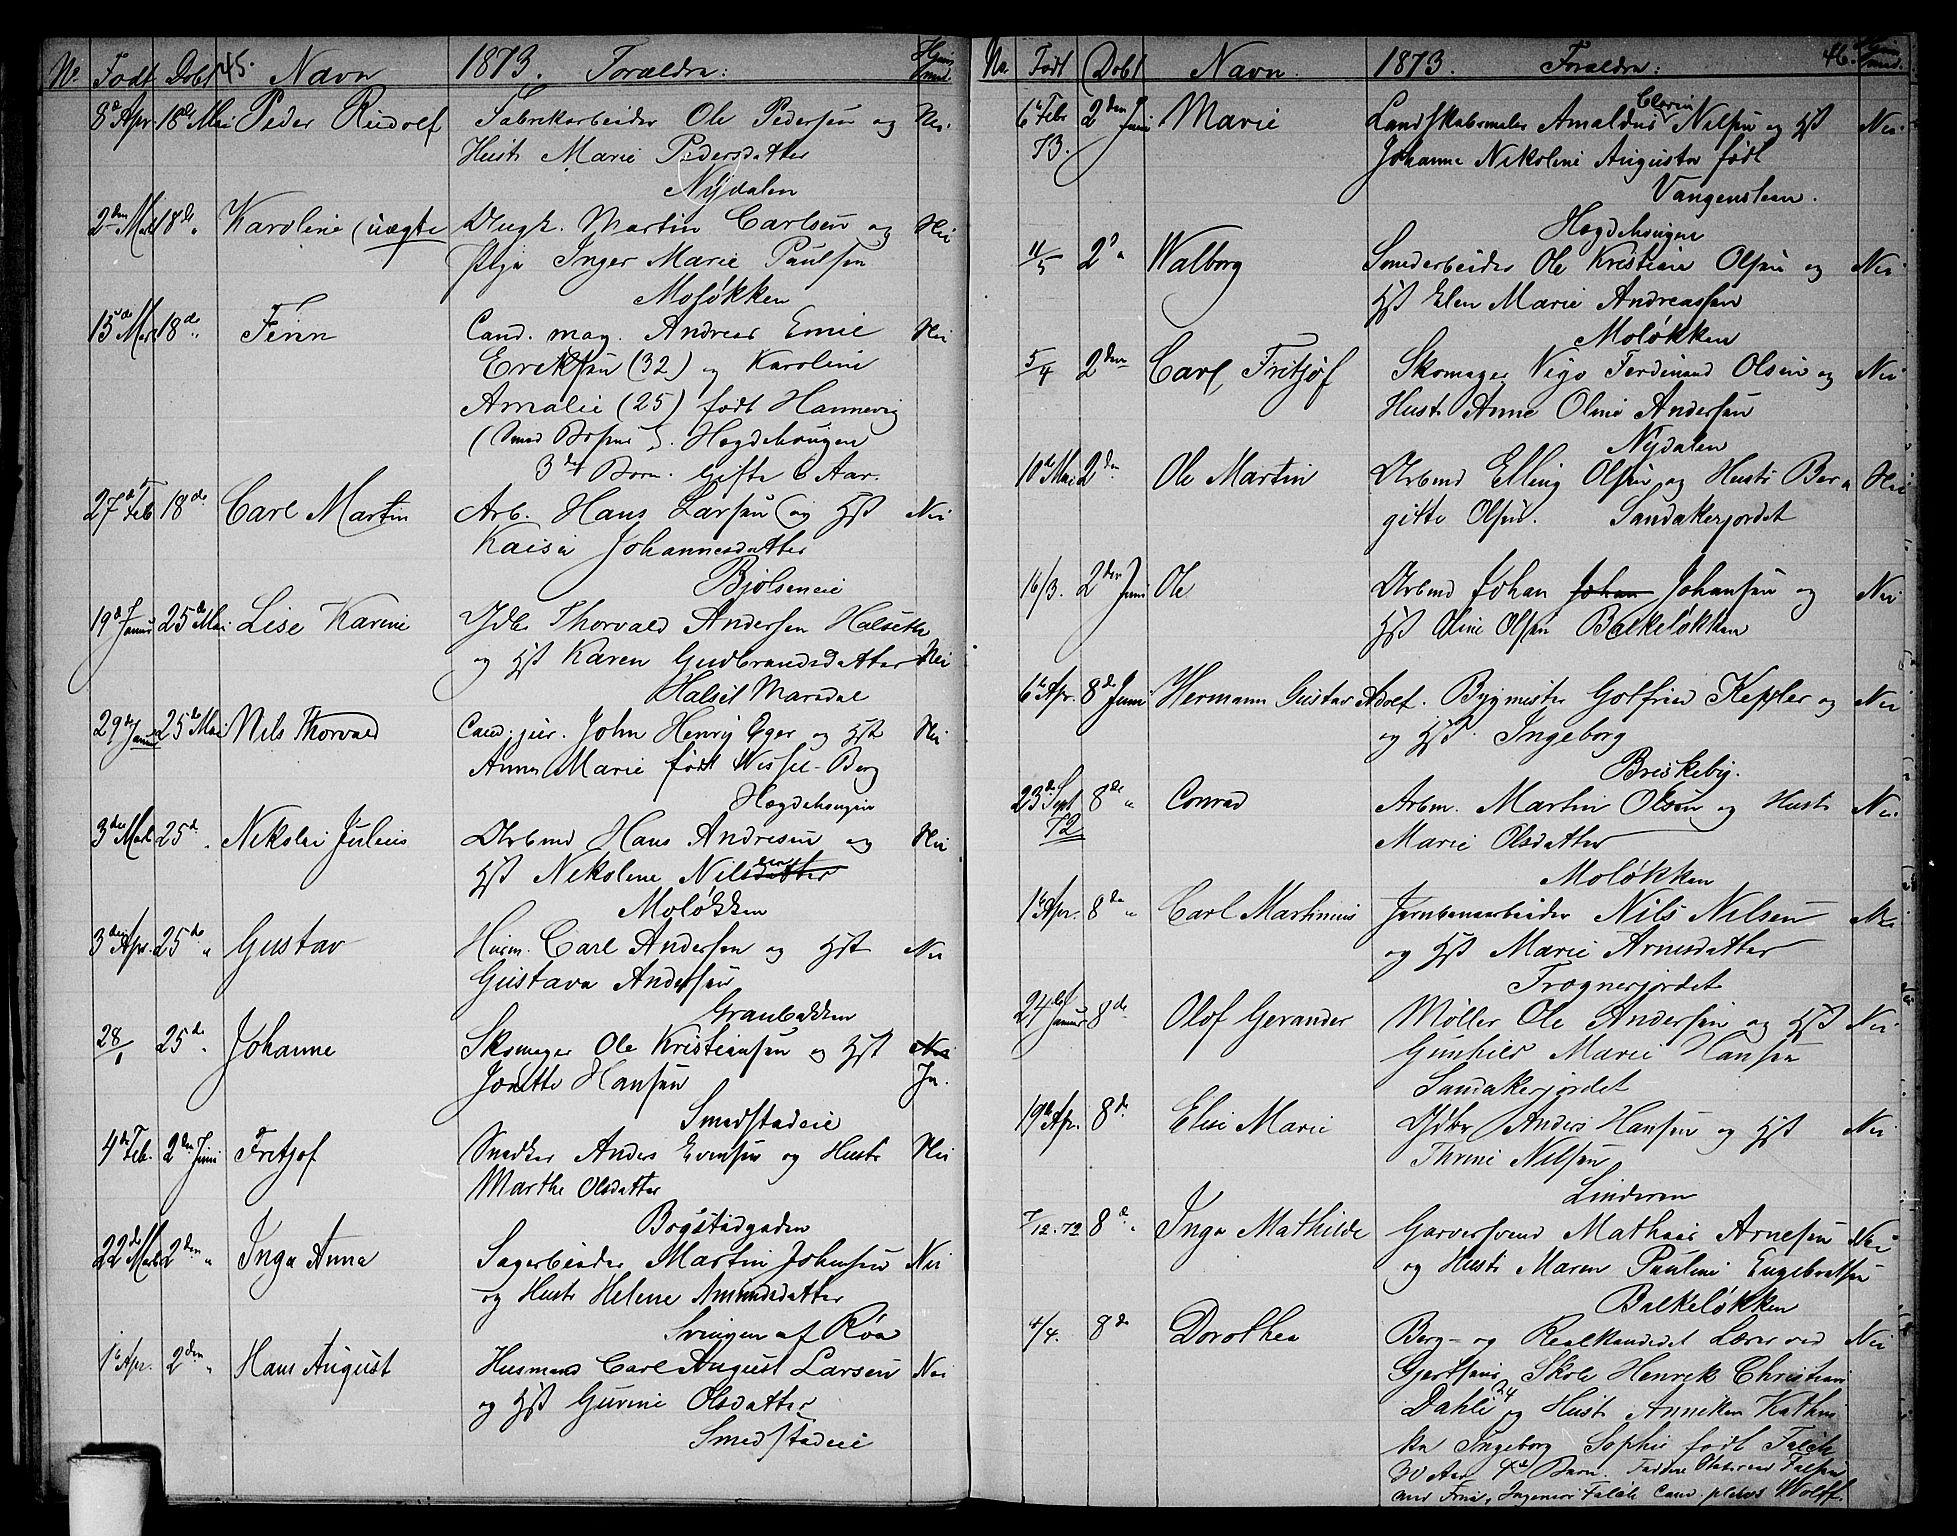 No. Født Døbt 45. Navn 1873. Forældre: Hjem
8de Apr. 18de Mai Peder Rudolf Fabrikarbeider Ole Pedersen og Nei.
Hust. Marie Pedersdatter
Nydalen
2den Marts 18de " Karoline (uægte Ungk. Martin Carlsen og Nei
Pige Inger Marie Paulsen
Moløkken
15de Marts 18de " Finn Cand. mag. Andreas Emil Nei
Eriksen (32) og Karoline
Amalie (25) født Hannevig
Hægdehaugen
3de Barn. Gifte 6 Aar.
27de Feb 18de Carl Martin Arb. Hans Larsen og Hst Nei
Kaisa Johannesdatter
Bjølseneie
19de Januar 25de Mai Lise Karine Jdbr Thorvald Andersen Halseth
og Hst Karen Gudbrandsdatter Nei
Halset Maredal
29de Januar 25de Mai Nils Thorvald Cand. jur. John Henry Eger og Hst Nei
Anna Marie født Wessel-Berg
Hægdehaugen
3den Marts 25de " Nikolai Julius Arbmd Hans Andresen og Nei
Hst Nikoline Nilsdatter
Moløkken
3den Apr. 25de " Gustav Husm. Carl Andersen og Hst Nei
Gustava Andersen
Graubækken
28/1 25de " Johanne Skomager Ole Kristiansen og Hst Nei
Jonette Hansen Ja.
Smedstadeie
4de Feb. 2den Juni Fritjof Snedker Anders Evensen og Hustr Nei
Marthe Olsdatter
Bogstadgaden
22de Marts 2den " Inga Anna Sagarbeider Martin Johnsen Nei
og Hustr Helene Amundsdatter
Svingen af Røa
1ste Apr. 2den " Hans August Husmand Carl August Larsen Nei
og Hst Gurine Olsdatter
Smedstadeie
No. Født Døbt Navn. 1873. Forældre: 46. Hjem
6te Febr 2den Juni Marie Landskabsmaler Amaldus Clarin Nilsen og Hst Nei
73. Johanne Nikoline Augusta født
Vangensteen.
Hægdehaugen
11/5 2den " Walborg Smedarbeider Ole Kristian Olsen og Nei
Hst Elen Marie Andreassen
Moløkken
5/4 2den Carl Fritjof Skomager Vigo Ferdinand Olsen og Nei
Hustr Anne Oline Andersen
Nydalen
10de Mai 2den Ole Martin Arbmd Elling Olsen og Hustr Ber Nei
gitte Olsen. Sandakerjordet
16/3. 2den Juni Ole Arbmd Johan Johan Johansen og Nei
Hst Oline Olsen Balkeløkken
6te Apr. 8de Juni Hermann Gustav Adolf. Bygmester Gotfried Keppler og Nei
og Hst. Ingeborg
Briskeby.
23de Sept 8de " Conrad Arbm. Martin Olsen og Hustr Nei
72 Marie Olsdatter
Moløkken
1ste Apr. 8de " Carl Martinius Jernbanearbeider Nils Nilsen Nei
og Hst Marie Arnesdatter
Frognerjordet
24de Januar 8de Olof Gerander Møller Ole Andersen og Hst Nei
Gunhild Marie Hansen
Sandakerjordet
19de Apr. 8de Elise Marie Jdbr Anders Hansen og Hst Nei
Thrine Nilsen
Linderen
7/12.72 8de " Inga Mathilde Garversvend Mathias Arnesen Nei
og Hustr Maren Pauline Engebretsen
Balkeløkken
4/4. 8de Dorothea Berg- og Realkandidat Lærer ved Nei
Gjertsens Skole Henrik Christian
Dahl 34 og Hustr Anneken Kathri
ka Ingeborg Sophie født Falch
30 Aar 4de Barn. Faddere
Ingeniør Falch Cand. Wolff.